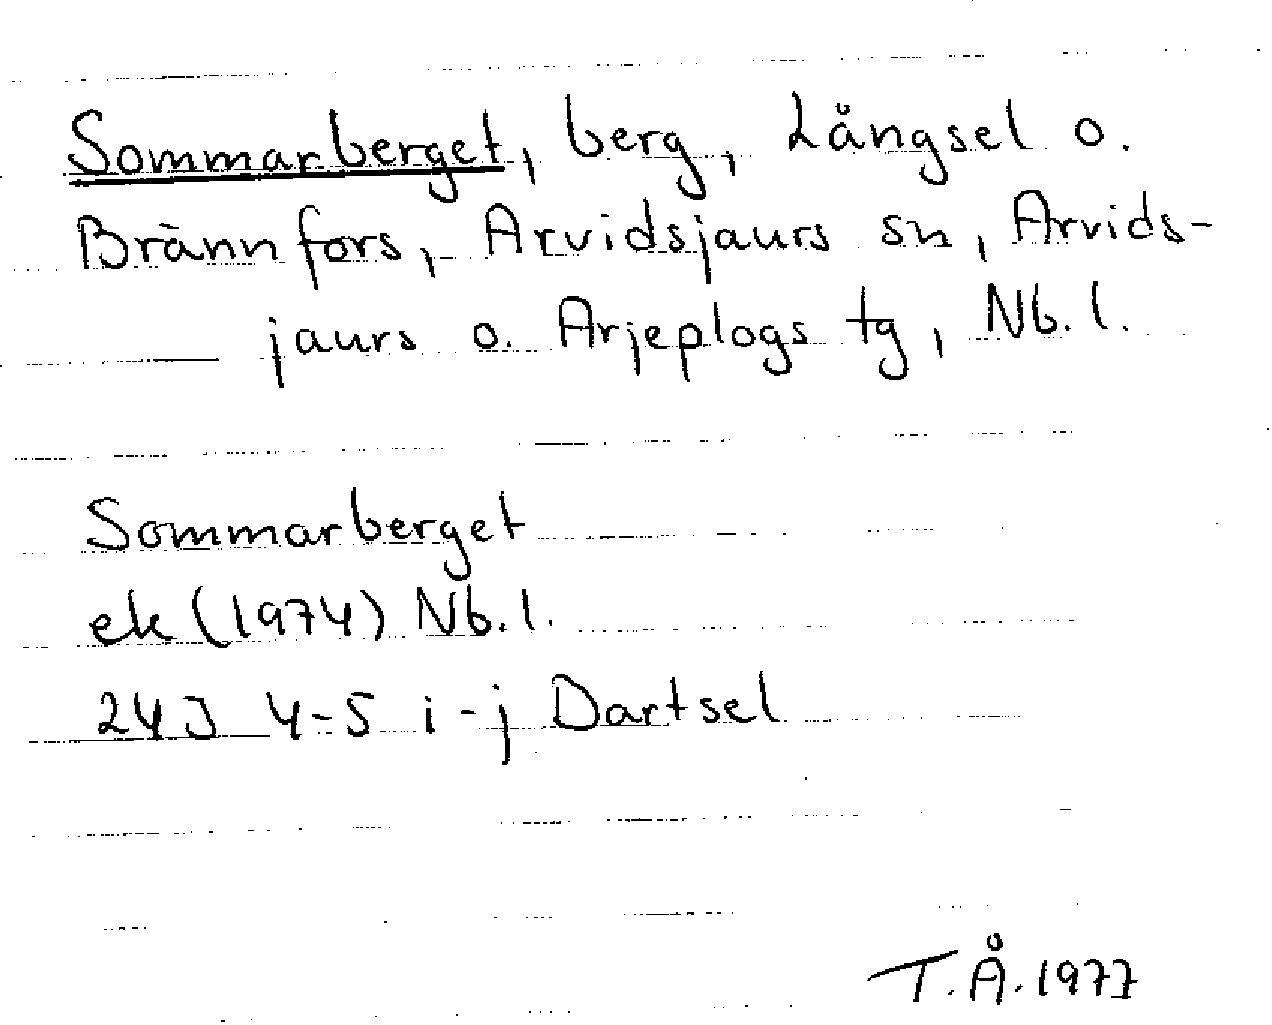 Sommarberget, berg, Långsel o.
Brännfors, Arvidsjaurs sn, Arvids-
jaurs o. Arjeplogs tg, Nb. l.
Sommarberget
ek (1974) Nb. l.
24J 4-5 i-j Dartsel
T.Å. 1977